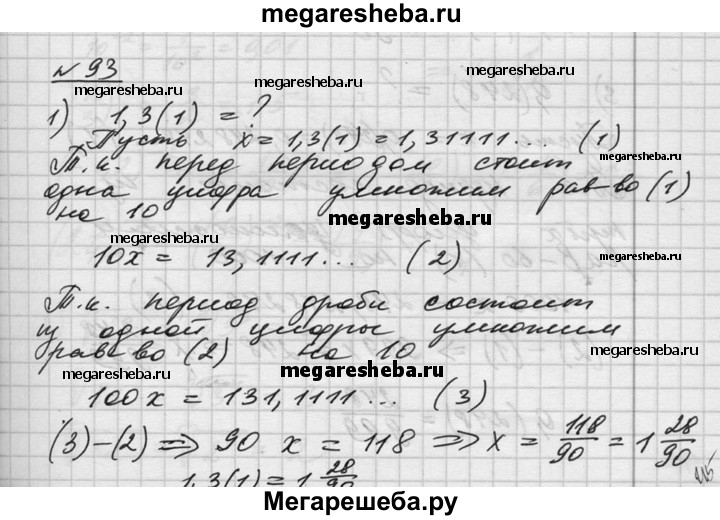 megaresheba.ru
№ 93
megaresheba.ru
megaresheba.ru
1) 1,3(1) = ?
Пусть x = 1,3(1) = 1,31111... (1)
megaresheba.ru
Т.к. перед периодом стоит
одна цифра умножим рав-во (1)
на 10
megaresheba.ru
megaresheba.ru
10x = 13,1111... (2)
Т.к. период дроби состоит
из одной цифры умножим
рав-во (2) на 10
megaresheba.ru
megaresheba.ru
megaresheba.ru
100x = 131,1111... (3)
(3)-(2) => 90 x = 118 => x = 118/90 = 1 28/90
1,3(1) = 1 28/90
Мегарешеба.ру